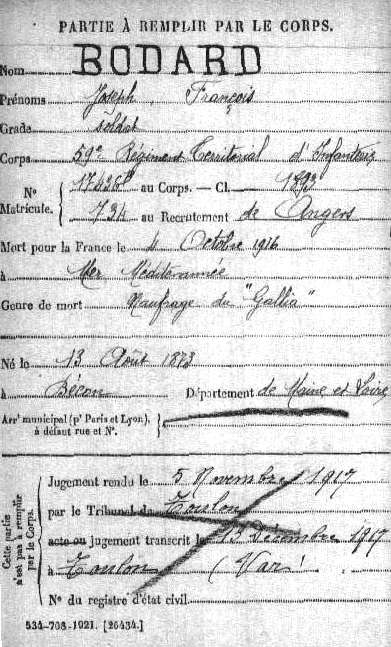 PARTIE À REMPLIR PAR LE CORPS.
Nom BODARD
Prénoms Joseph François
Grade soldat
Corps 59e Régiment Territorial d'Infanterie
Nº Matricule. 17436 au Corps. — Cl. 1893
734 au Recrutement de Angers
Mort pour la France le 4 Octobre 1916
à Mer Méditerannée
Genre de mort Naufrage du "Gallia"
Né le 13 Août 1873
à Bécon Département de Maine et Loire
Arrt municipal (pr Paris et Lyon),
à défaut rue et Nº.
Cette partie
n'est pas à remplir
par le Corps.
Jugement rendu le 5 Novembre 1917
par le Tribunal de Toulon
acte ou jugement transcrit le 13 Décembre 1917
à Toulon (Var)
Nº du registre d'état civil
534-708-1921. [26434.]